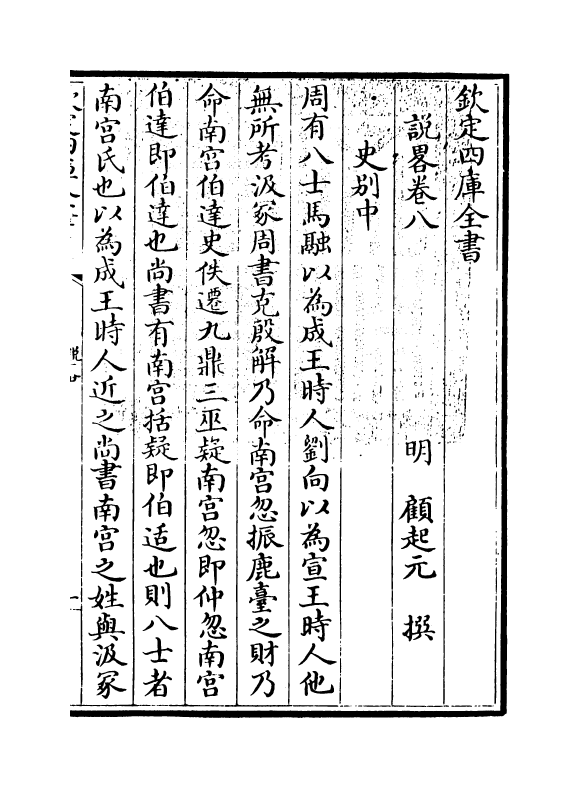 欽定四庫全書
說畧卷八
明　顧起元　撰
史別中
周有八士馬融以為成王時人劉向以為宣王時人他
無所考汲冢周書克殷解乃命南宮忽振鹿臺之財乃
命南宮伯達史佚遷九鼎三巫疑南宮忽即仲忽南宮
伯達即伯達也尚書有南宮括疑即伯适也則八士者
南宮氏也以為成王時人近之尚書南宮之姓與汲冢